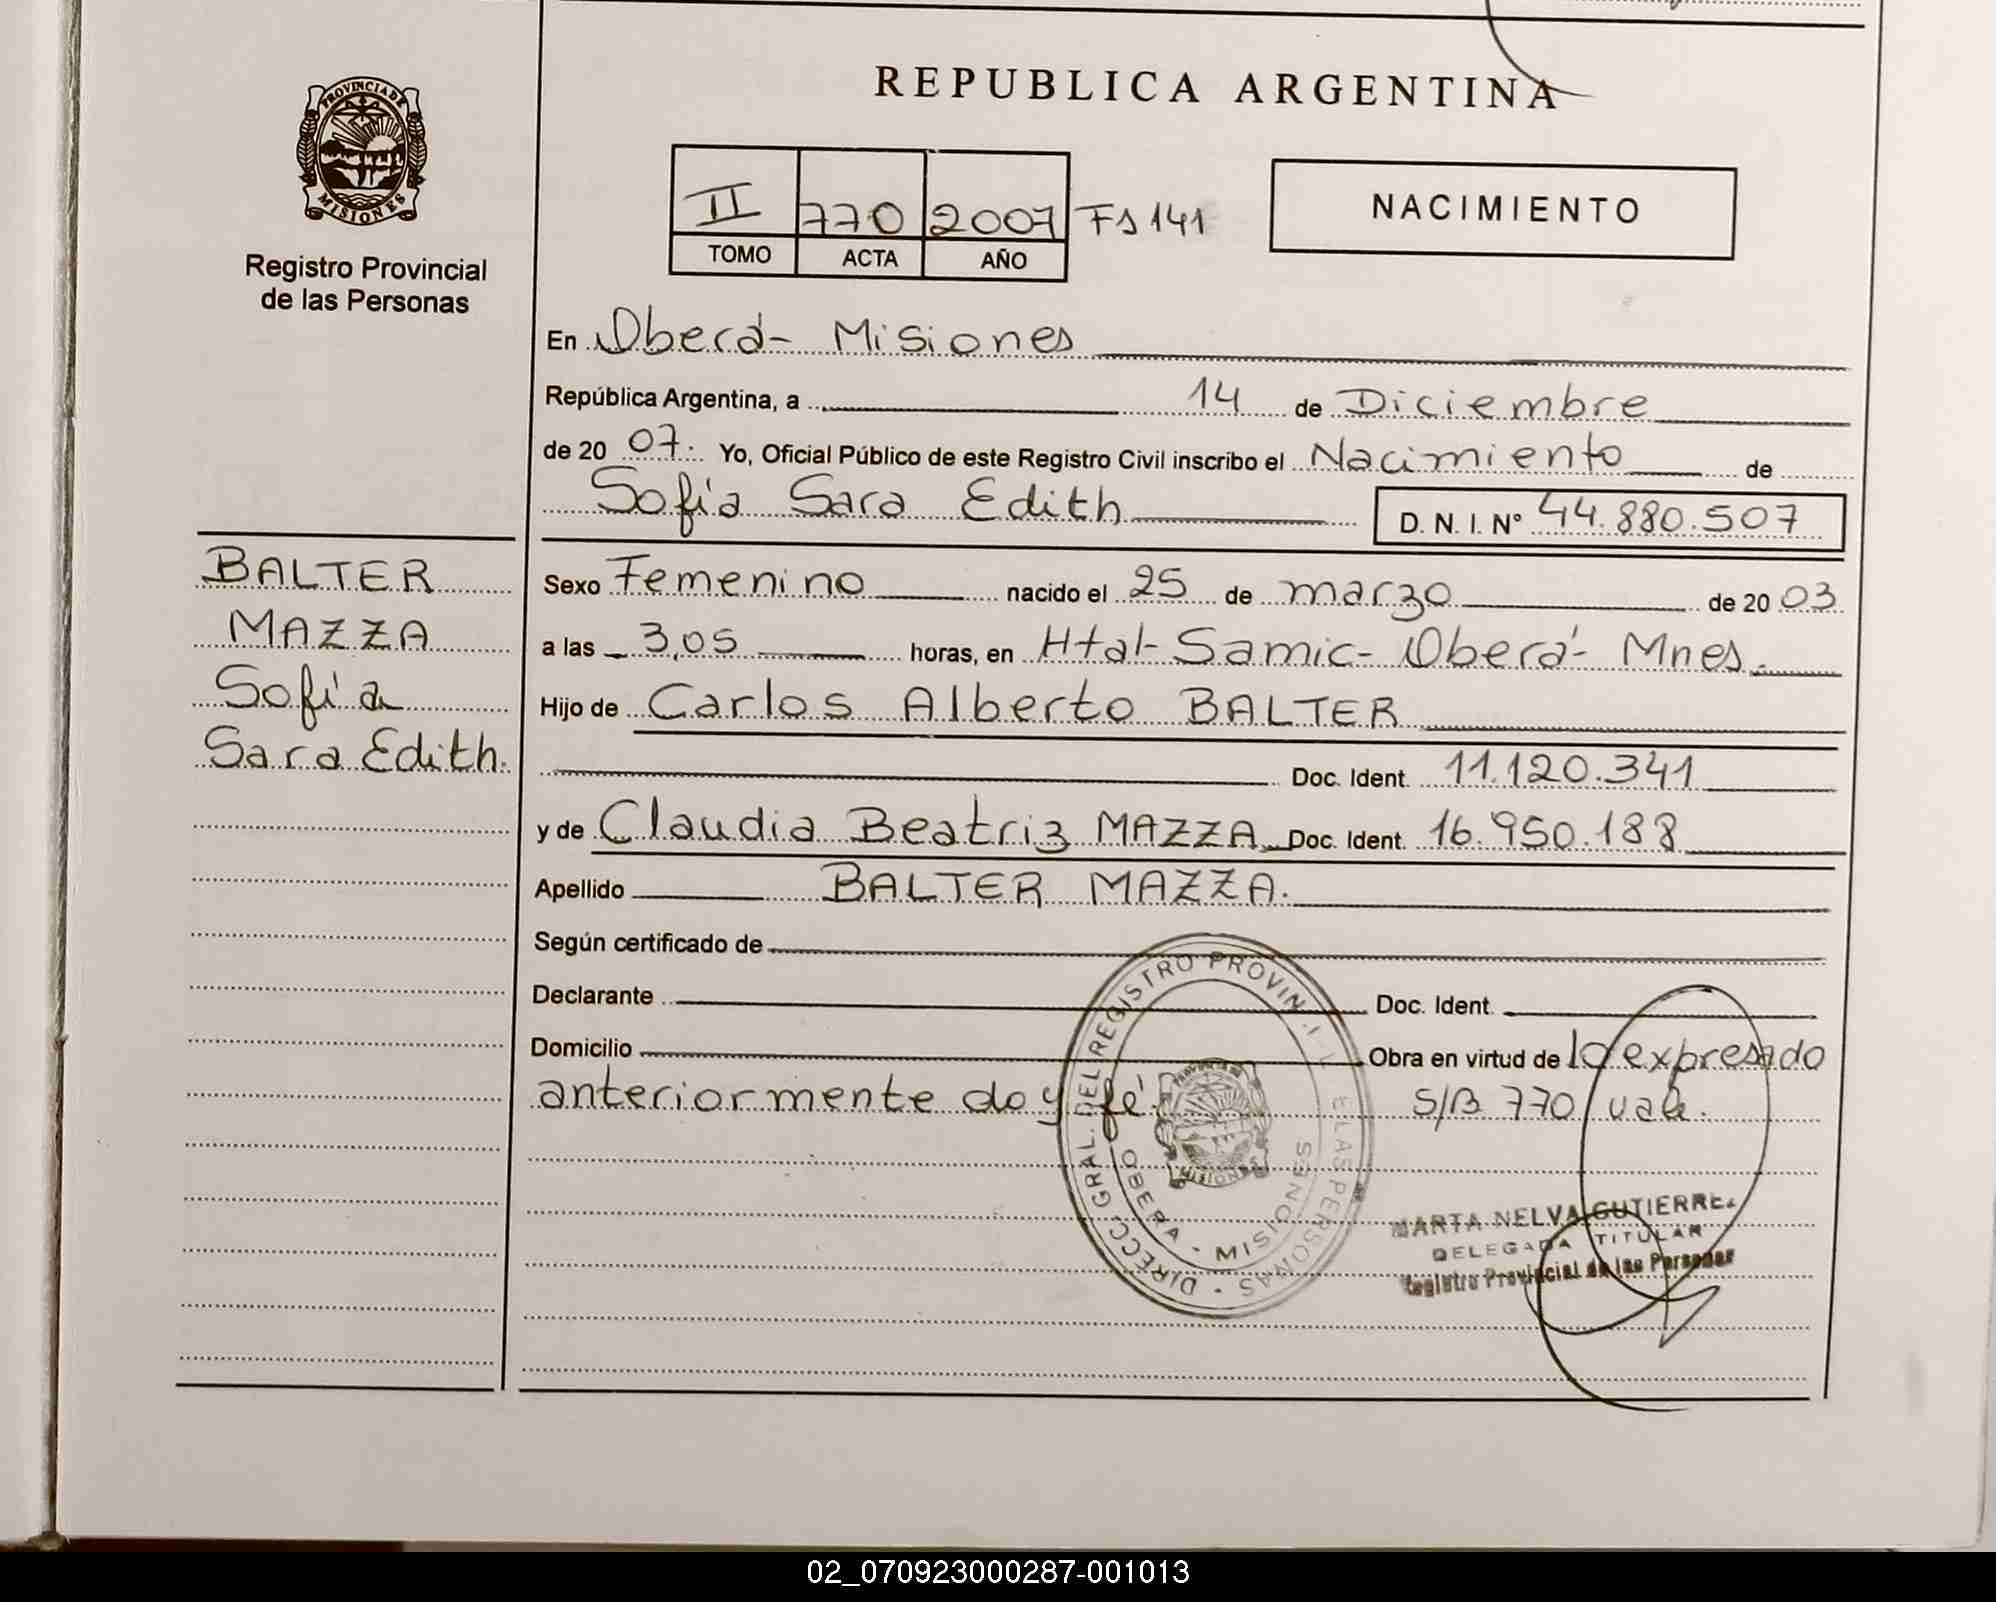 REPUBLICA ARGENTINA
PROVINCIA DE
MISIONES
Registro Provincial
de las Personas
II 770 2007 Fs 141
TOMO ACTA AÑO
NACIMIENTO
En Oberá- Misiones
República Argentina, a 14 de Diciembre
de 20 07. Yo, Oficial Público de este Registro Civil inscribo el Nacimiento de
Sofía Sara Edith D. N. I. Nº 44.880.507
BALTER
MAZZA
Sofía
Sara Edith.
Sexo Femenino nacido el 25 de marzo de 20 03
a las 3,05 horas, en Htal- Samic- Oberá- Mnes.
Hijo de Carlos Alberto BALTER
Doc. Ident. 11.120.341
y de Claudia Beatriz MAZZA Doc. Ident. 16.950.188
Apellido BALTER MAZZA.
Según certificado de
Declarante Doc. Ident.
Domicilio Obra en virtud de lo expresado
anteriormente doy fé. S/B 770 vale.
DIRECC. GRAL. DEL REGISTRO PROVIN. LAS PERSONAS
OBERA - MISIONES
MARTA NELVA GUTIERREZ
DELEGADA TITULAR
Registro Provincial de las Personas
02_070923000287-001013